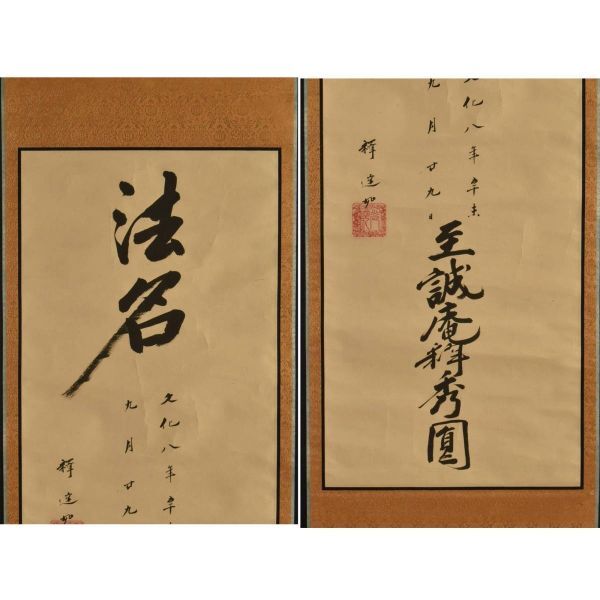 法名
文化八年辛
九月廿九
釋達如
文化八年辛未
九月廿九日
釋達如
至誠庵釋秀圓